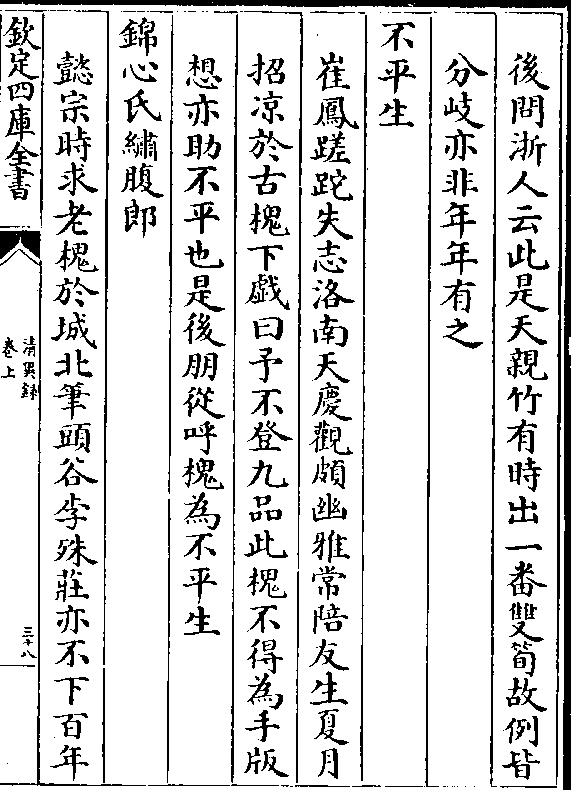 後問浙人云此是天親竹有時出一番雙筍故例皆
分岐亦非年年有之
不平生
崔鳳蹉跎失志洛南天慶觀頗幽雅常陪友生夏月
招凉於古槐下戯曰予不登九品此槐不得為手版
想亦助不平也是後朋從呼槐為不平生
錦心氏繡腹郎
懿宗時求老槐於城北筆頭谷李殊莊亦不下百年
欽定四庫全書
清異録
卷上
三十八